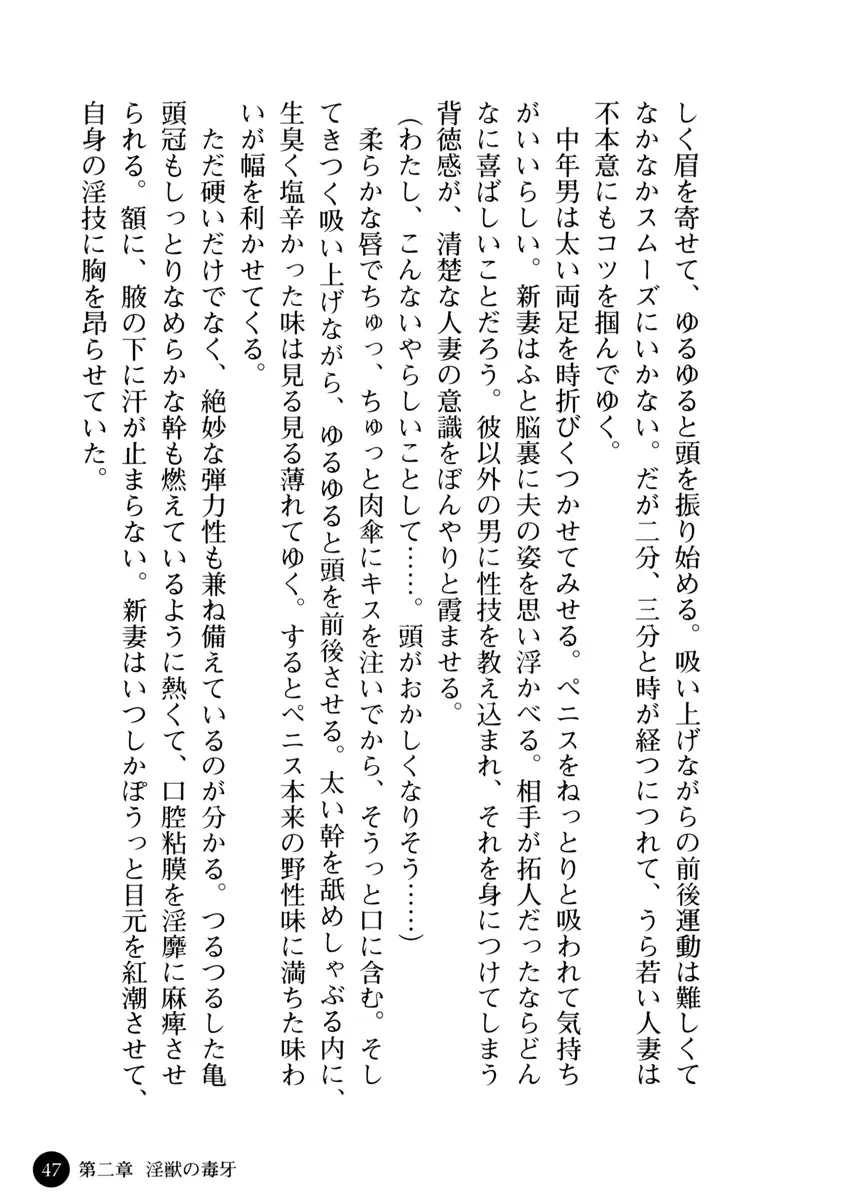 しく眉を寄せて、ゆるゆると頭を振り始める。吸い上げながらの前後運動は難しくて
なかなかスムーズにいかない。だが二分、三分と時が経つにつれて、うら若い人妻は
不本意にもコツを掴んでゆく。
中年男は太い両足を時折びくつかせてみせる。ペニスをねっとりと吸われて気持ち
がいいらしい。新妻はふと脳裏に夫の姿を思い浮かべる。相手が拓人だったならどん
なに喜ばしいことだろう。彼以外の男に性技を教え込まれ、それを身につけてしまう
背徳感が、清楚な人妻の意識をぼんやりと霞ませる。
(わたし、こんないやらしいことして……。頭がおかしくなりそう……)
柔らかな唇でちゅっ、ちゅっと肉傘にキスを注いでから、そうっと口に含む。そし
てきつく吸い上げながら、ゆるゆると頭を前後させる。太い幹を舐めしゃぶる内に、
生臭く塩辛かった味は見る見る薄れてゆく。するとペニス本来の野性味に満ちた味わ
いが幅を利かせてくる。
ただ硬いだけでなく、絶妙な弾力性も兼ね備えているのが分かる。つるつるした亀
頭冠もしっとりなめらかな幹も燃えているように熱くて、口腔粘膜を淫靡に麻痺させ
られる。額に、腋の下に汗が止まらない。新妻はいつしかぽうっと目元を紅潮させて、
自身の淫技に胸を昂らせていた。
47 第二章 淫獣の毒牙